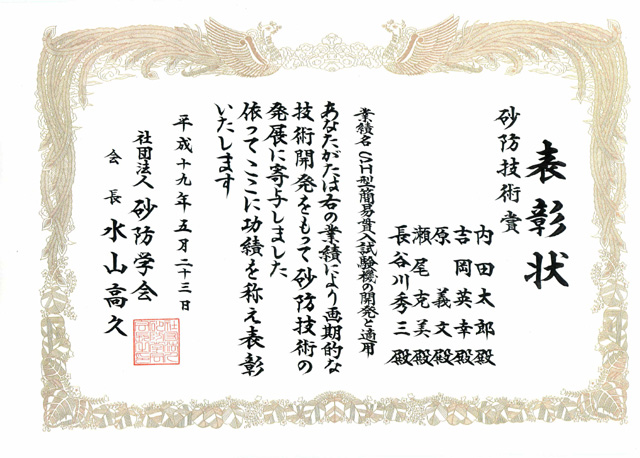 表彰状
砂防技術賞
内田太郎殿
吉岡英幸殿
原義文殿
瀬尾克美殿
長谷川秀三殿
業績名 SH型簡易貫入試験機の開発と適用
あなたがたは右の業績により画期的な
技術開発をもって砂防技術の
発展に寄与しました
依ってここに功績を称え表彰
いたします
平成十九年五月二十三日
社団法人 砂防学会
会長 水山高久